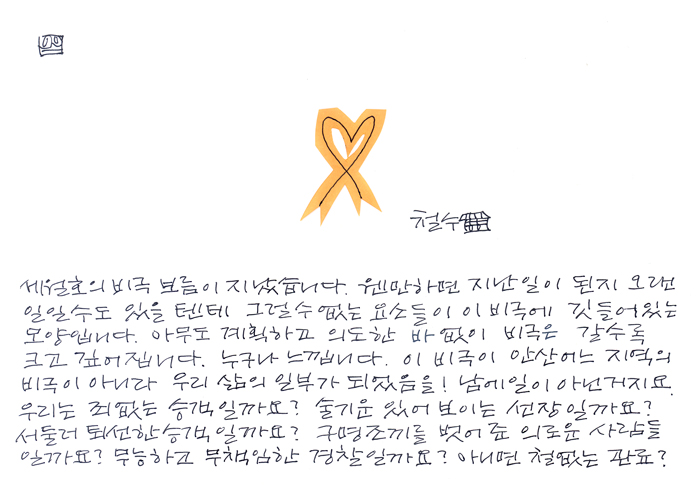 철수
세월호의 비극 보름이 지났습니다. 웬만하면 지난일이 된지 오랜
일일수도 있을 텐테 그럴수없는 요소들이 이 비극에 깃들어있는
모양입니다. 아무도 계획하고 의도한 바 없이 비극은 갈수록
크고 깊어집니다. 누구나 느낍니다. 이 비극이 안산어느 지역의
비극이 아니라 우리 삶의 일부가 되었음을! 남에일이 아닌거지요.
우리는 죄없는 승객일까요? 슬기운 있어 보이는 선장일까요?
서둘러 퇴선한승객일까요? 구명조끼를 벗어준 의로운 사람들
일까요? 무능하고 무책임한 경찰일까요? 아니면 철없는 관료?